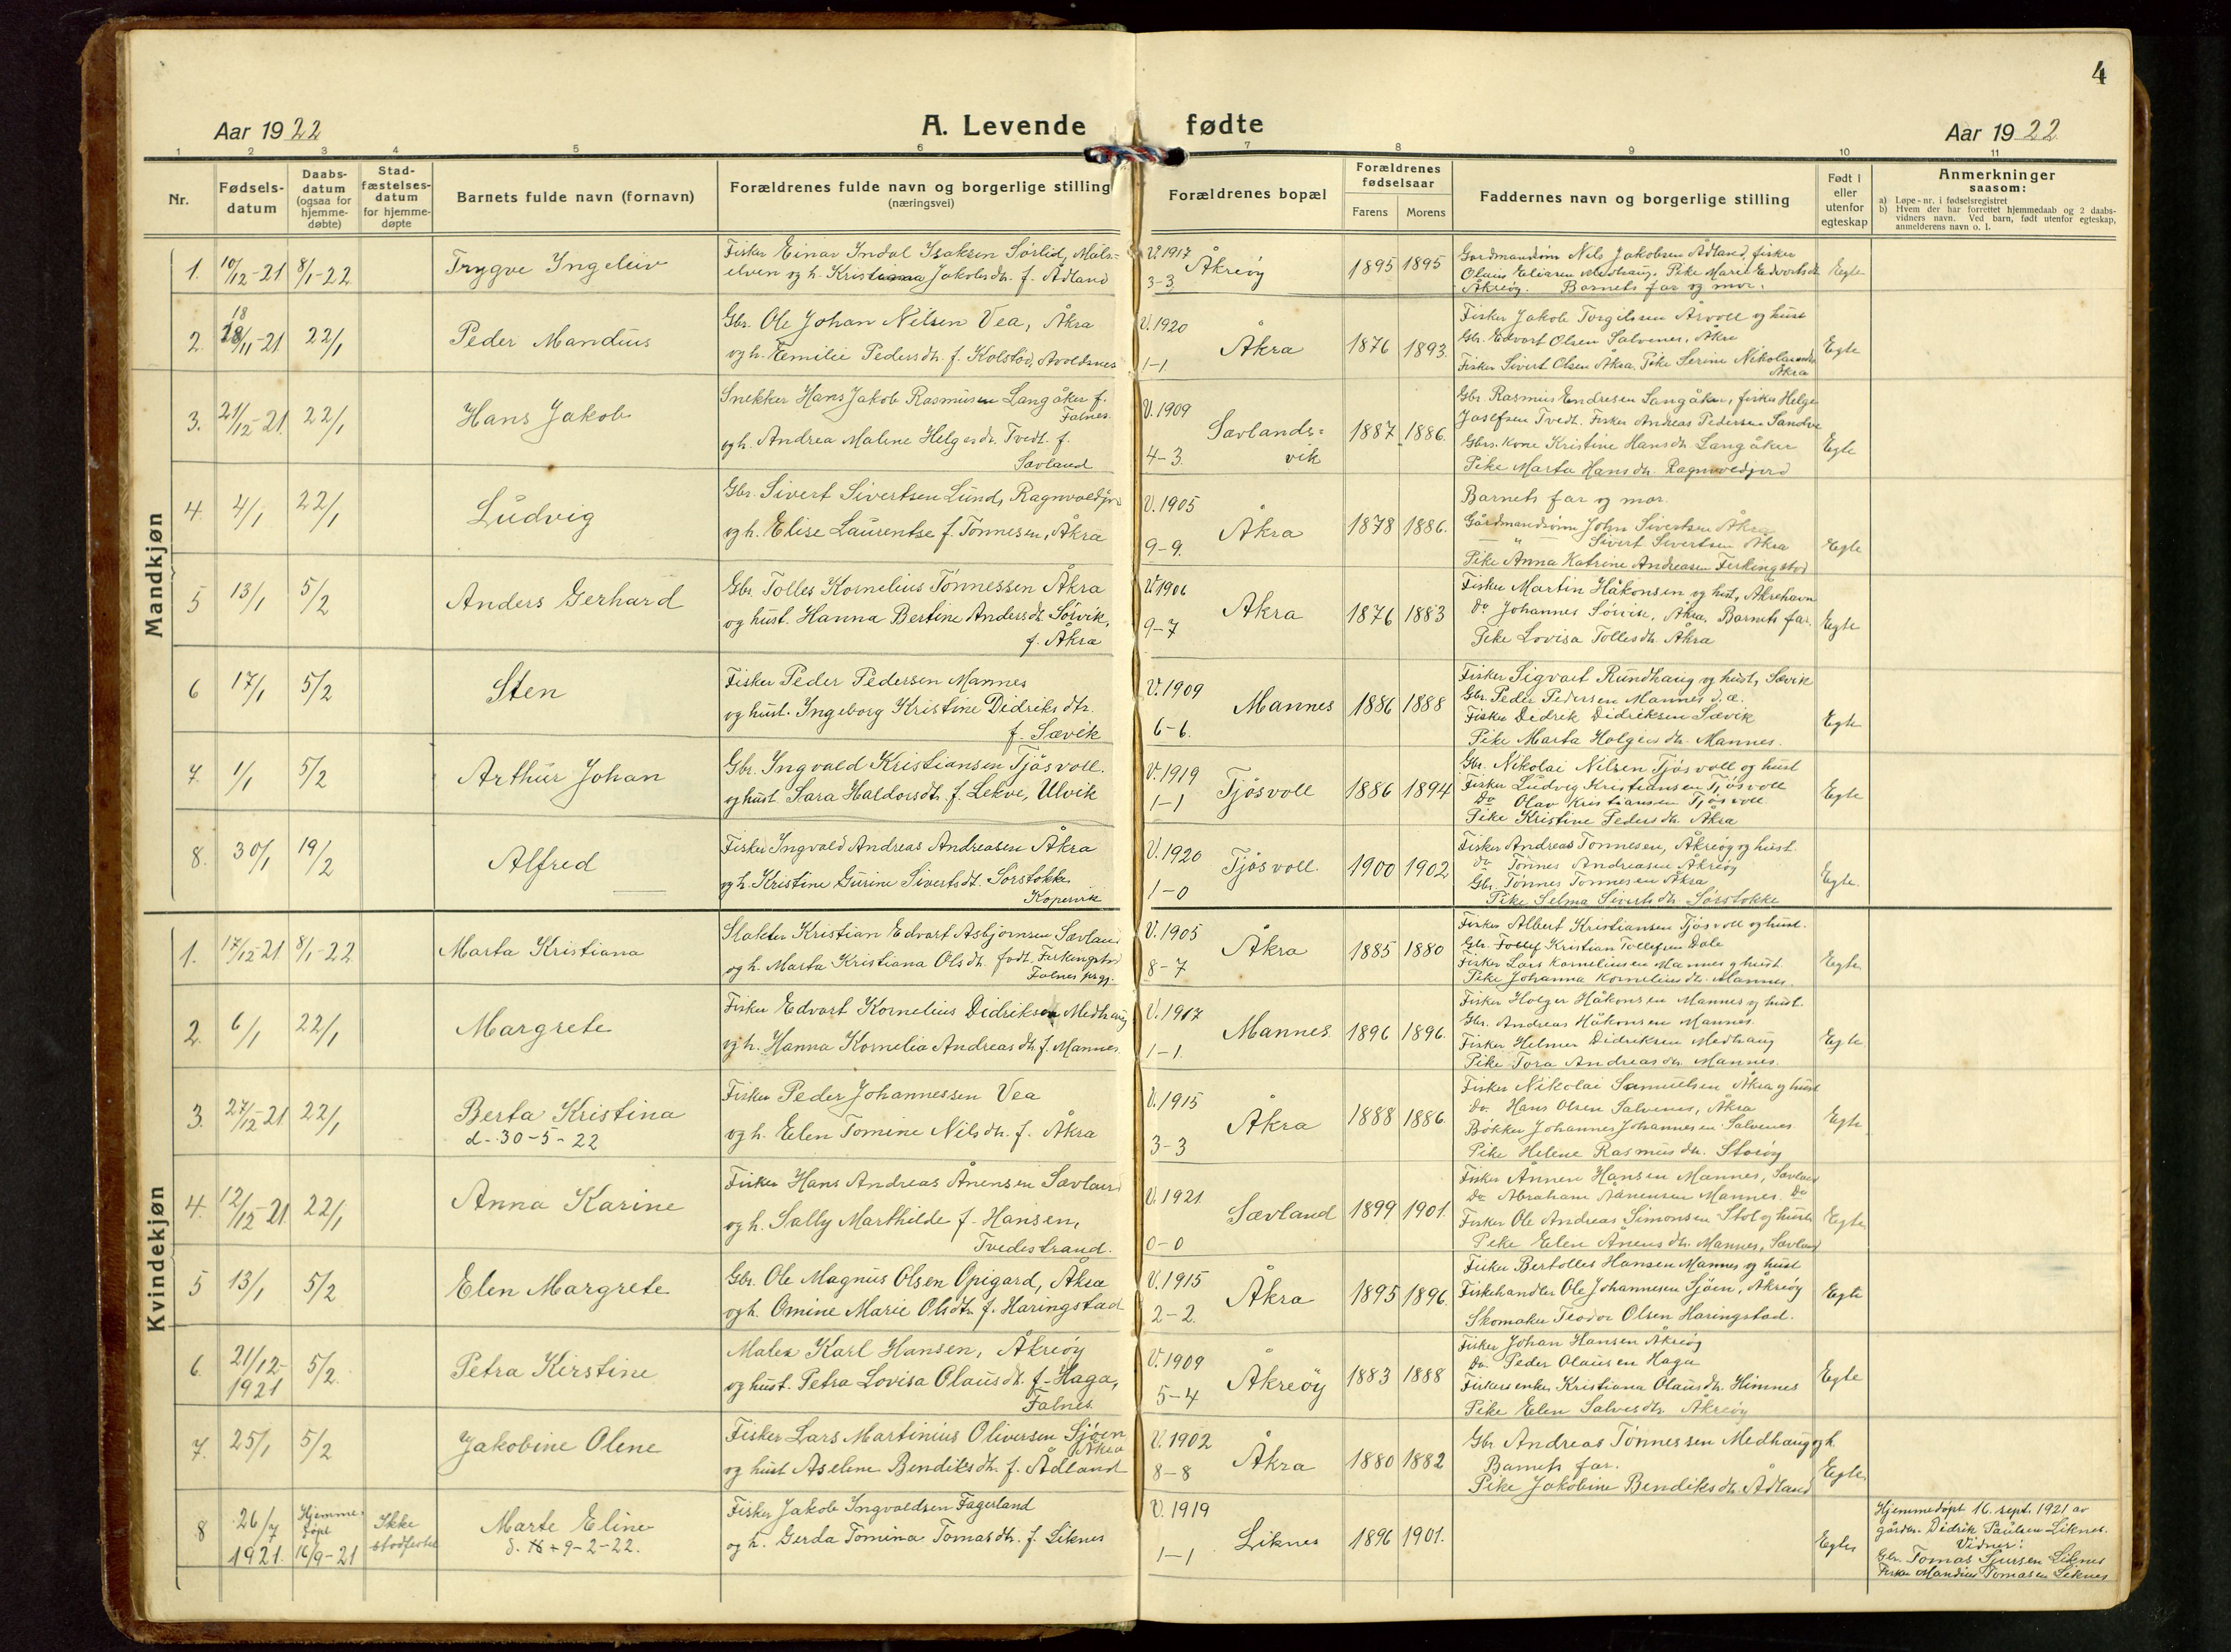 4
Aar 1922
A. Levende fødte
Aar 1922
1 2 3 4 5 6 7 8 9 10 11
Nr.
Fødsels-
datum
Daabs-
datum
(ogsaa for
hjemme-
døbte)
Stad-
fæstelses-
datum
for hjemme-
døpte
Barnets fulde navn (fornavn)
Forældrenes fulde navn og borgerlige stilling
(næringsvei)
Forældrenes bopæl
Forældrenes
fødselsaar
Farens Morens
Faddernes navn og borgerlige stilling
Født i
eller
utenfor
egteskap
Anmerkninger
saasom:
a) Løpe-nr. i fødselsregistret
b) Hvem der har forrettet hjemmedaab og 2 daabs-
vidners navn. Ved barn, født utenfor egteskap,
anmelderens navn o. l.
Mandkjøn
1. 10/12-21 8/1-22 Trygve Ingeleiv
Fisker Einar Indal Isaksen Sørlid, Måls-
elven og h. Kristianna Jakobsdtr. f. Ådland
V. 1917
3-3 Åkreøy 1895 1895
Gardmandsønn Nils Jakobsen Ådland, fisker
Olaus Eliasen Medhaug. Pike Marie Edvartsdtr
Åkreøy. Barnets far og mor.
Egte
2. 18
18/11-21 22/1 Peder Mandius
Gbr. Ole Johan Nilsen Vea, Åkra
og h. Emilie Pedersdtr. f. Kolstø, Avoldsnes
V. 1920
1-1 Åkra 1876 1893.
Fisker Jakob Torgilsen Åsvoll og hust
Gbr. Edvart Olsen Salvenes, Åkra
Fisker Sivert Olsen Åkra, Pike Serine Nikolaisdtr
Åkra
Egte
3. 21/12-21 22/1 Hans Jakob
Snekker Hans Jakob Rasmusen Langåker f.
Falnes
og h. Andrea Malene Helgesdtr. Tvedt f.
Sævland
V. 1909
4-3. Sævlands-
vik 1887 1886.
Gbr. Rasmus Endresen Langåker, fisker Helge
Josefsen Tvedt. Fisker Andreas Pedersen Sandve
Gbrs. kone Kristine Hansdtr. Langåker
Pike Marta Hansdtr. Ragnvoldjord
Egte
4. 4/1 22/1 Ludvig
Gbr. Sivert Sivertsen Lund, Ragnvoldjord
og h. Elise Laurentse f. Tønnesen, Åkra
V. 1905
9-9. Åkra 1878 1886.
Barnets far og mor.
Gårdmandsønn John Sivertsen Åkra
— " — Sivert Sivertsen Åkra
Pike Anna Katrine Andreasen Ferkingstad
Egte
5 13/1 5/2 Anders Gerhard
Gbr. Tolles Kornelius Tønnessen Åkra
og hust. Hanna Bertine Andersdtr. Sørvik,
f. Åkra
V. 1906
9-7 Åkra 1876 1883
Fisker Martin Håkonsen og hust, Åkrehavn
do Johannes, Åkra, Barnets far.
Pike Lovisa Tollesdtr. Åkra
Egte
6 17/1 5/2 Sten
Fisker Peder Pedersen Mannes
og hust. Ingeborg Kristine Didriksdtr.
f. Sævik
V. 1909
6-6. Mannes 1886 1888
Fisker Sigvart Rundhaug og hust, Sævik
Gbr. Peder Pedersen Mannes d.æ.
Fisker Didrik Didriksen Sævik
Pike Marta Holgersdtr. Mannes.
Egte
7. 1/1 5/2 Arthur Johan
Gbr. Ingvald Kristiansen Tjøsvoll.
og hust. Sara Haldorsdtr. f. Lekve, Ulvik
V. 1919
1-1 Tjøsvoll 1886 1894
Gbr. Nikolai Nilsen Tjøsvoll og hust
Fisker Ludvig Kristiansen Tjøsvoll
Do Olav Kristiansen Tjøsvoll
Pike Kristine Pedersdtr. Åkra
Egte
8. 30/1 19/2 Alfred
Fisker Ingvald Andreas Andreasen Åkra
og h. Kristine Gurine Sivertsdt. Sørstokke
Kopervik
V. 1920
1-0 Tjøsvoll. 1900 1902
Fisker Andreas Tønnesen, Åkreøy og hust.
do Tønnes Andreasen Åkreøy
Gbr. Tønnes Tønnesen Åkra
Pike Selma Sivertsdtr. Sørstokke
Egte.
Kvindekjøn
1. 17/12-21 8/1-22 Marta Kristiana
Slakter Kristian Edvart Asbjørnsen Sævland
og h. Marta Kristiana Olsdtr. født Ferkingstad
Falnes prgj.
V. 1905
8-7 Åkra 1885 1880
Fisker Albert Kristiansen Tjøsvoll og hust.
Gbr. Tollef Kristian Tollefsen Dale
Fisker Lars Kornelius­en Mannes og hust.
Pike Johanna Korneliusdtr. Mannes.
Egte
2. 6/1 22/1 Margrete
Fisker Edvart Kornelius Didriksen Medhaug
og h. Hanna Kornelia Andreasdtr. f. Mannes.
V. 1917
1-1. Mannes. 1896 1896.
Fisker Holger Håkonsen Mannes og hust.
Gbr. Andreas Håkonsen Mannes.
Fisker Helmer Didriksen Medhaug
Pike Tora Andreasdtr. Mannes.
Egte
3. 27/12-21 22/1 Berta Kristina
d. 30-5-22
Fisker Peder Johannessen Vea
og h. Elen Tomine Nilsdtr. f. Åkra
V. 1915
3-3 Åkra 1888 1886.
Fisker Nikolai Samuelsen Åkra og hust
do. Hans Olsen Salvenes, Åkra
Bøkker Johannes Johannesen Salvenes
Pike Helene Rasmusdtr. Storøy
Egte
4. 12/12-21 22/1 Anna Karine
Fisker Hans Andreas Ånensen Sævland
og h. Sally Marthilde f. Hansen,
Tvedestrand.
V. 1921
0-0 Sævland 1899 1901.
Fisker Ånnen Hansen Mannes, Sævland
Do Abraham Ånensen Mannes. Do
Fisker Ole Andreas Simonsen Stol og hust
Pike Elen Ånensdtr. Mannes, Sævland
Egte
5 13/1 5/2 Elen Margrete
Gbr. Ole Magnus Olsen Opigard, Åkra
og h. Omine Marie Olsdtr. f. Haringstad
V. 1915
2-2. Åkra 1895 1896.
Fisker Bertolles Hansen Mannes og hust
Fiskehandler Ole Johannesen Sjøen, Åkreøy
Skomaker Teodor Olsen Haringstad.
Egte
6. 21/12-
1921 5/2. Petra Kirstine
Maler Karl Hansen, Åkreøy
og hust. Petra Lovisa Olausdt. f. Haga,
Falnes
V. 1909
5-4 Åkreöy 1883 1888
Fisker Johan Hansen Åkreøy
Do. Peder Olausen Haga
Fiskersenke Kristiana Olausdtr. Hinnes
Pike Elen Salvesdtr. Åkreöy
Egte
7. 25/1 5/2 Jakobine Olene
Fisker Lars Martinius Oliversen Sjøen
Åkra
og hust Aselene Bendiksdtr. f. Ådland
V. 1902
8-8 Åkra 1880 1882
Gbr Andreas Tønnessen Medhaug og h.
Barnets far.
Pike Jakobine Bendiksdtr. Ådland
Egte
8 26/7
1921. Hjemme-
døpt
16/9-21 Ikke
stadfestet Marte Eline
d. 9-2-22.
Fisker Jakob Ingvaldsen Fagerland
og h. Gerda Tomina Tomasdtr. f. Liknes
V. 1919
1-1 Liknes 1896 1901.
Egte
Hjemmedøpt 16. sept. 1921 av
gårdm. Didrik Paulsen Liknes.
Vidner:
Gbr. Tomas Sjursen Liknes
Fisker Mandius Tomasen Liknes